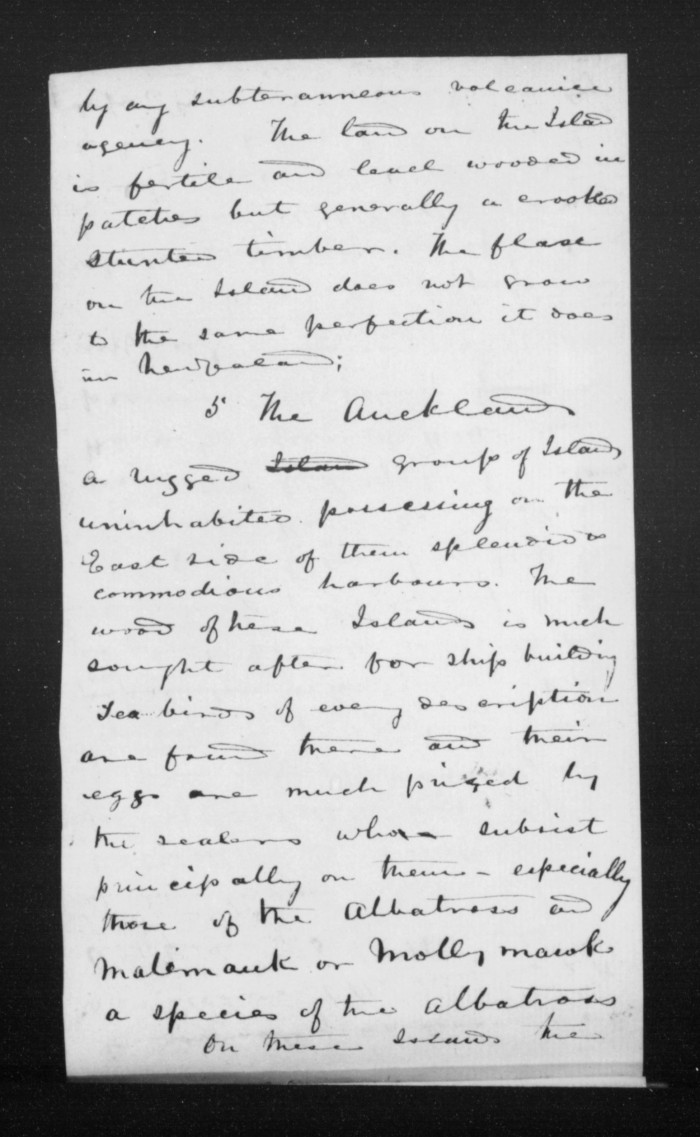 by any subterranneous volcanice
agency. The land on the Island
is fertile and level wooded in
patches but generally a crooked
stunted timber. The flax
on the Island does not grow
to the same perfection it does
in Newzealand;
5 The Aucklands
a rugged Island group of Islands
uninhabited. possessing on the
East side of them splendid &
commodious harbours. The
wood of these Islands is much
sought after for ship building
Sea birds of every description
are found there and their
eggs are much prized by
the sealers who subsist
principally on them - especially
those of the Albatross and
Malimauk or Molly mawk
a species of the albatross
On these Islands the